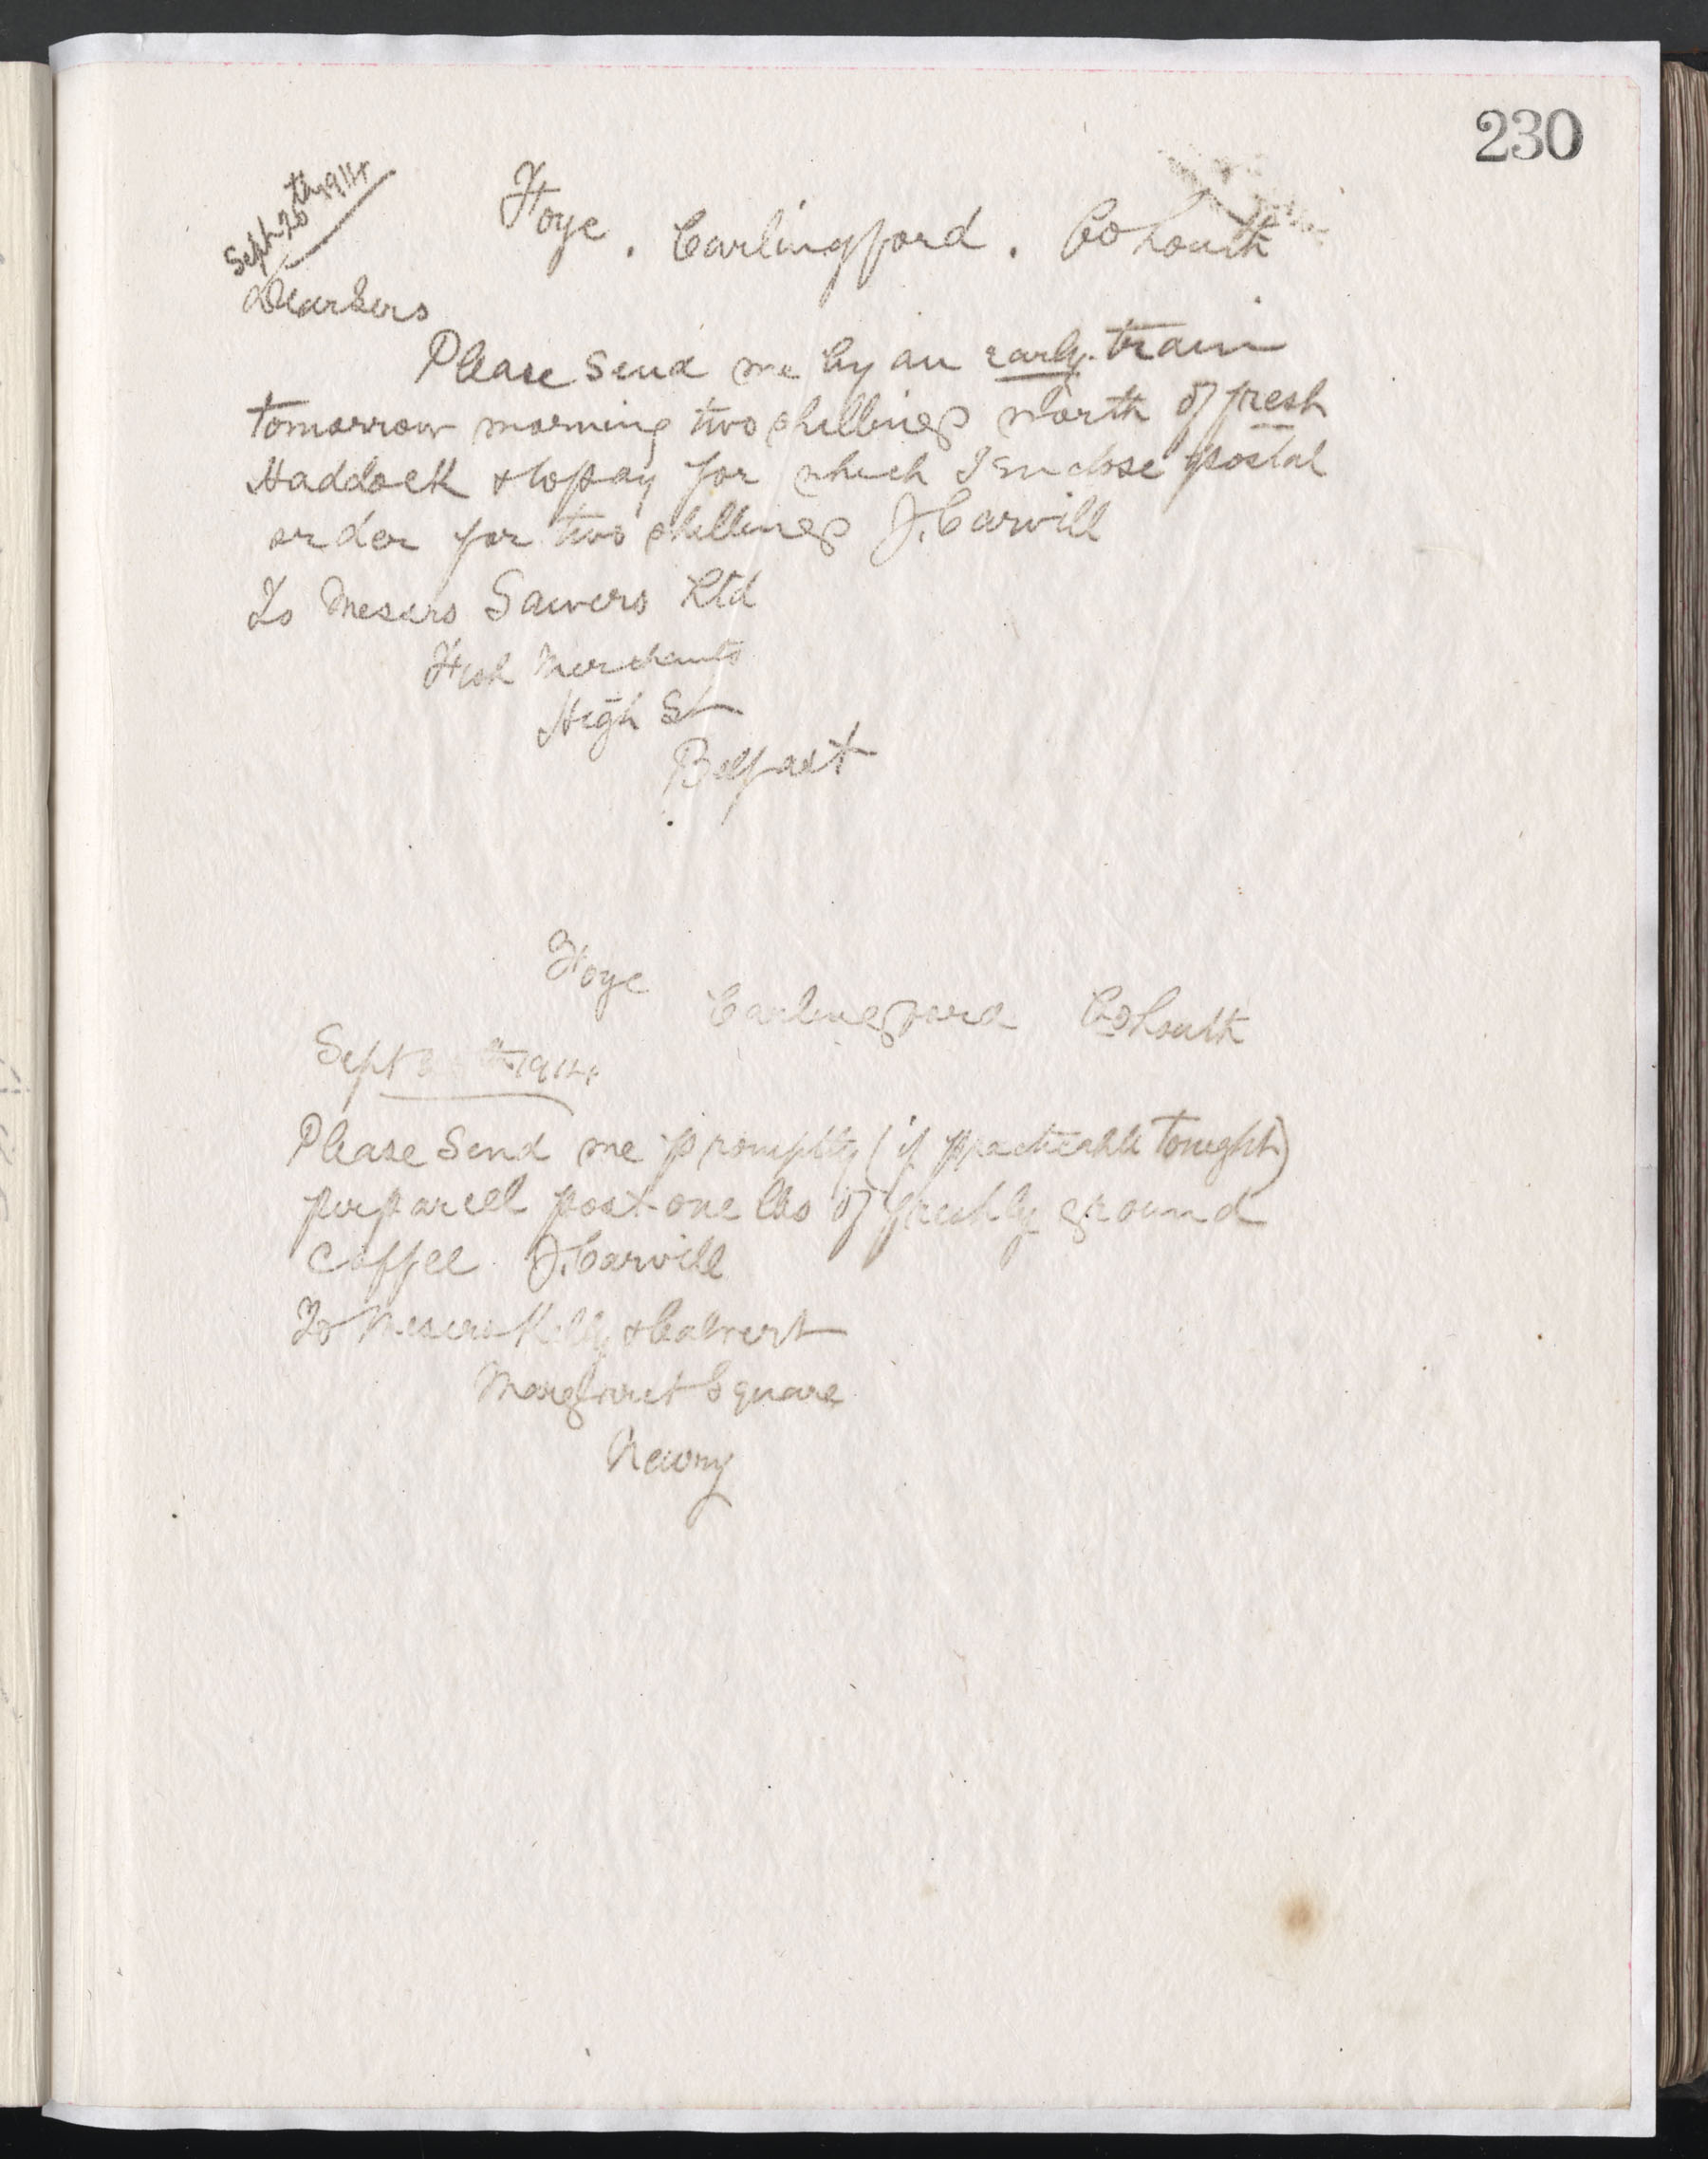 230
Sept 26th 1914
Foye. Carlingford. Co Louth
Dear Sirs
Please send me by an early train
tomorrow morning two shillings worth of fresh
Haddock & to pay for which I enclose postal
order for two shillings J. Carvill
To Messrs Sawers Ltd
Fish Merchants
High St
Belfast
Foye Carlingford Co Louth
Sept 1914
Please Send me promptly (if practicable tonight)
per parcel post one lbs of freshly ground
Coffee J. Carvill
To Messrs Kelly & Calvert
Margaret Square
Newry